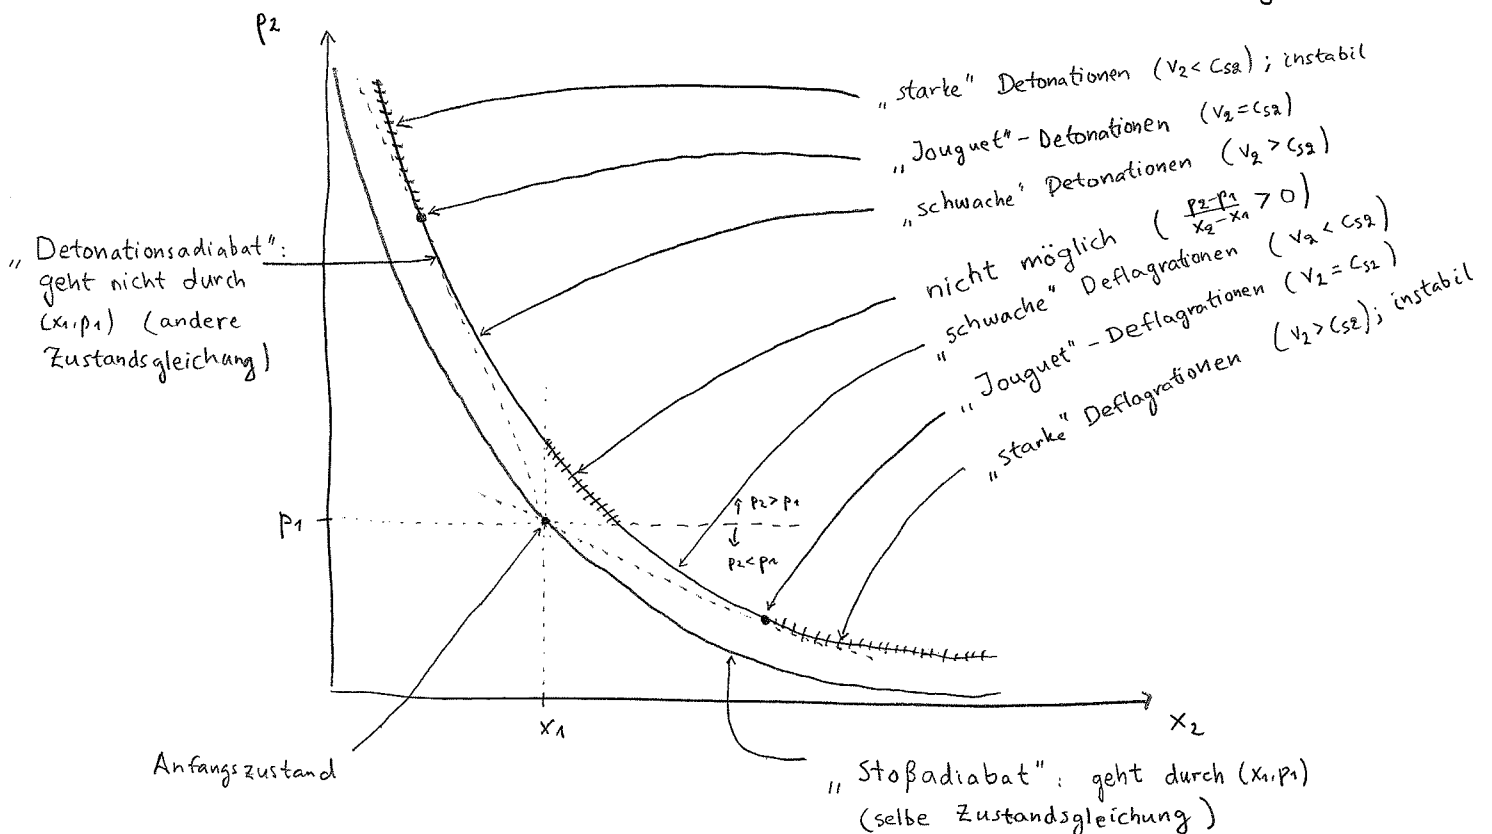 p₂
„starke" Detonationen (v₂ < c_s2); instabil
„Jouguet"-Detonationen (v₂ = c_s2)
„schwache" Detonationen (v₂ > c_s2)
nicht möglich ( (p₂-p₁)/(x₂-x₁) > 0 )
„schwache" Deflagrationen (v₂ < c_s2)
„Jouguet"-Deflagrationen (v₂ = c_s2)
„starke" Deflagrationen (v₂ > c_s2); instabil
„Detonationsadiabat":
geht nicht durch
(x₁,p₁) (andere
Zustandsgleichung)
p₁
↑ p₂>p₁
↓
p₂<p₁
x₁
x₂
Anfangszustand
„Stoßadiabat": geht durch (x₁,p₁)
(selbe Zustandsgleichung)